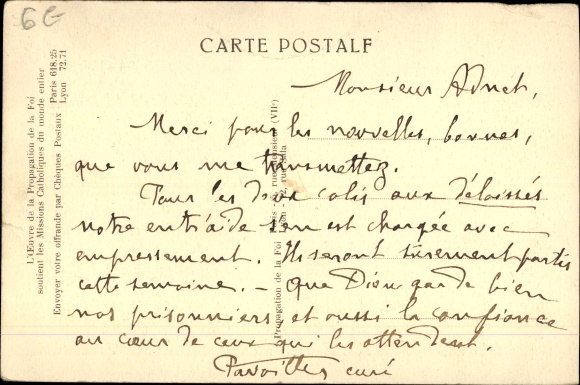 6G
CARTE POSTALE
Monsieur Adnet,
Merci pour les nouvelles, bonnes,
que vous me transmettez.
Pour les deux colis aux délaissés
notre entr'aide s'en est chargée avec
empressement. Ils seront sûrement partis
cette semaine. – que Dieu garde bien
nos prisonniers, et aussi la confiance
au cœur de ceux qui les attendent.
curé
L'Œuvre de la Propagation de la Foi
soutient les Missions Catholiques du monde entier
Envoyer votre offrande par Chèques Postaux - Paris 618.25
Lyon 72.71
Propagation de la Foi
(VIIe)
Lyon